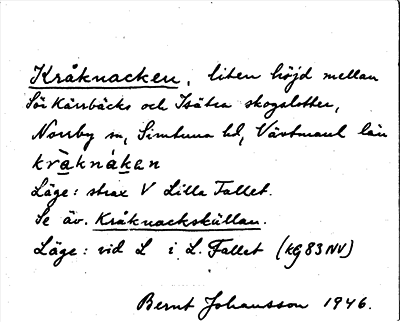 Kråknacken, liten höjd mellan
Sör Kärrbäcks och Isätra skogslotter,
Norrby sn, Simtuna hd, Västmanl län
kråknakan
Läge: strax V Lilla Fallet.
Se äv. Kråknackskällan.
Läge: vid L i L. Fallet (kg 83 NV)
Bernt Johansson 1946.